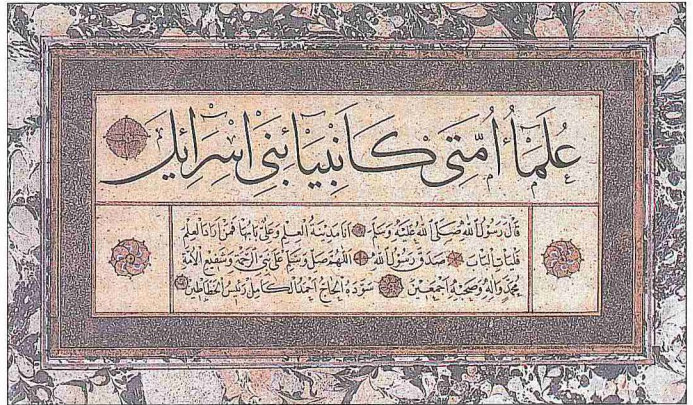 عُلَمَاءُ اُمَّتِى كَاَنْبِيَائِ بَنِى اِسْرَائِلَ
قَالَ رَسُولُ اللهِ صَلَّى اللهُ عَلَيْهِ وَسَلَّمَ اَنَا مَدِينَةُ الْعِلْمِ وَعَلِىٌّ بَابُهَا فَمَنْ اَرَادَ الْعِلْمَ
فَلْيَأْتِ الْبَابَ صَدَقَ رَسُولُ اللهِ اَللّٰهُمَّ صَلِّ وَسَلِّمْ عَلَى نَبِىِّ الرَّحْمَةِ وَشَفِيعِ الْاُمَّةِ
مُحَمَّدٍ وَاٰلِهِ وَصَحْبِهِ اَجْمَعِينَ سَوَّدَهُ الْحَاجْ اَحْمَدُ الْكَامِلْ رَئِيسُ الْخَطَّاطِينَ